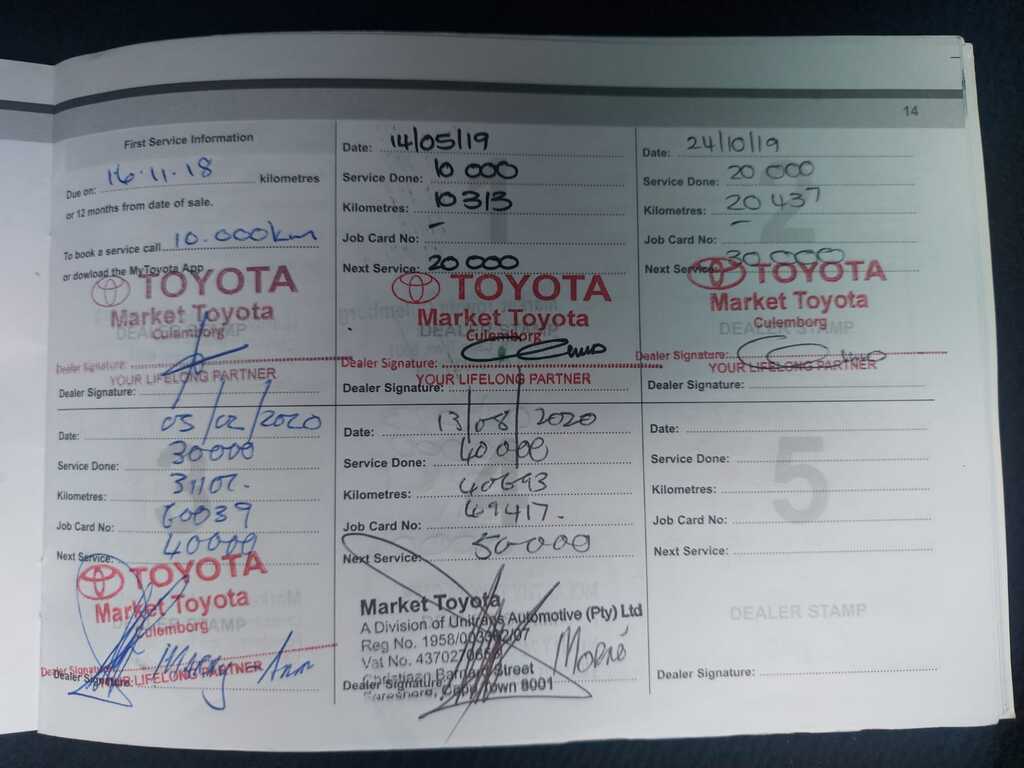 14
First Service Information
Due on: 16.11.18 kilometres
or 12 months from date of sale.
To book a service call 10.000km
or dowload the MyToyota App
TOYOTA
Market Toyota
Culemborg
DEALER STAMP
Dealer Signature:
YOUR LIFELONG PARTNER
Dealer Signature:
Date: 14/05/19
Service Done: 10 000
Kilometres: 10313
Job Card No: -
Next Service: 20 000
TOYOTA
Market Toyota
DEALER STAMP
Culemborg
Dealer Signature:
YOUR LIFELONG PARTNER
Dealer Signature:
Date: 24/10/19
Service Done: 20 000
Kilometres: 20 437
Job Card No: -
Next Service: 30 000
TOYOTA
Market Toyota
Culemborg
DEALER STAMP
Dealer Signature:
YOUR LIFELONG PARTNER
Dealer Signature:
Date: 05/02/2020
Service Done: 30000
Kilometres:
Job Card No: 60039
Next Service: 40000
TOYOTA
Market Toyota
Culemborg
STAMP
Dealer Signature:
YOUR LIFELONG PARTNER
Dealer Signature:
Date: 13/08/2020
Service Done: 40000
Kilometres: 40693
Job Card No: 49417-
Next Service: 50000
Market Toyota
A Division of Unitrans Automotive (Pty) Ltd
Reg No. 1958/
Vat No. 4370270
Street
Dealer Signature
Cape Town 8001
Morné
5
Date:
Service Done:
Kilometres:
Job Card No:
Next Service:
DEALER STAMP
Dealer Signature: